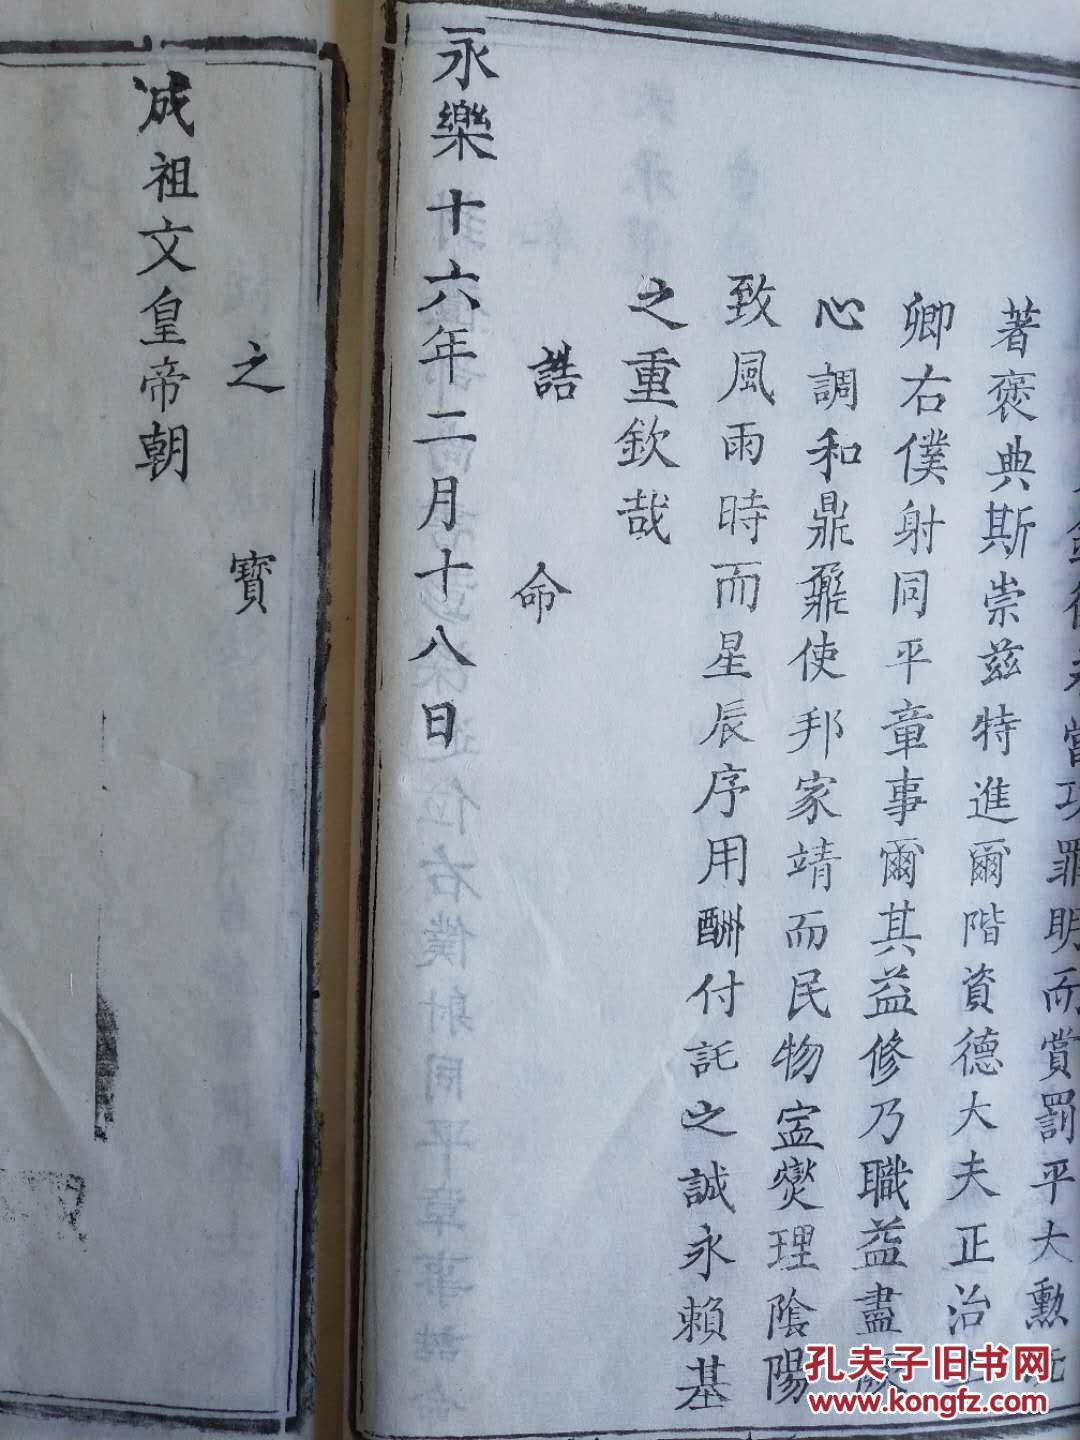 當功罪明而賞罰平大勳
著褒典斯崇茲特進爾階資德大夫正治上
卿右僕射同平章事爾其益修乃職益盡厥
心調和鼎鼐使邦家靖而民物寍燮理陰陽
致風雨時而星辰序用酬付託之誠永賴基
之重欽哉
誥命
永樂十六年二月十八日
之寶
成祖文皇帝朝
孔夫子旧书网
www.kongfz.com